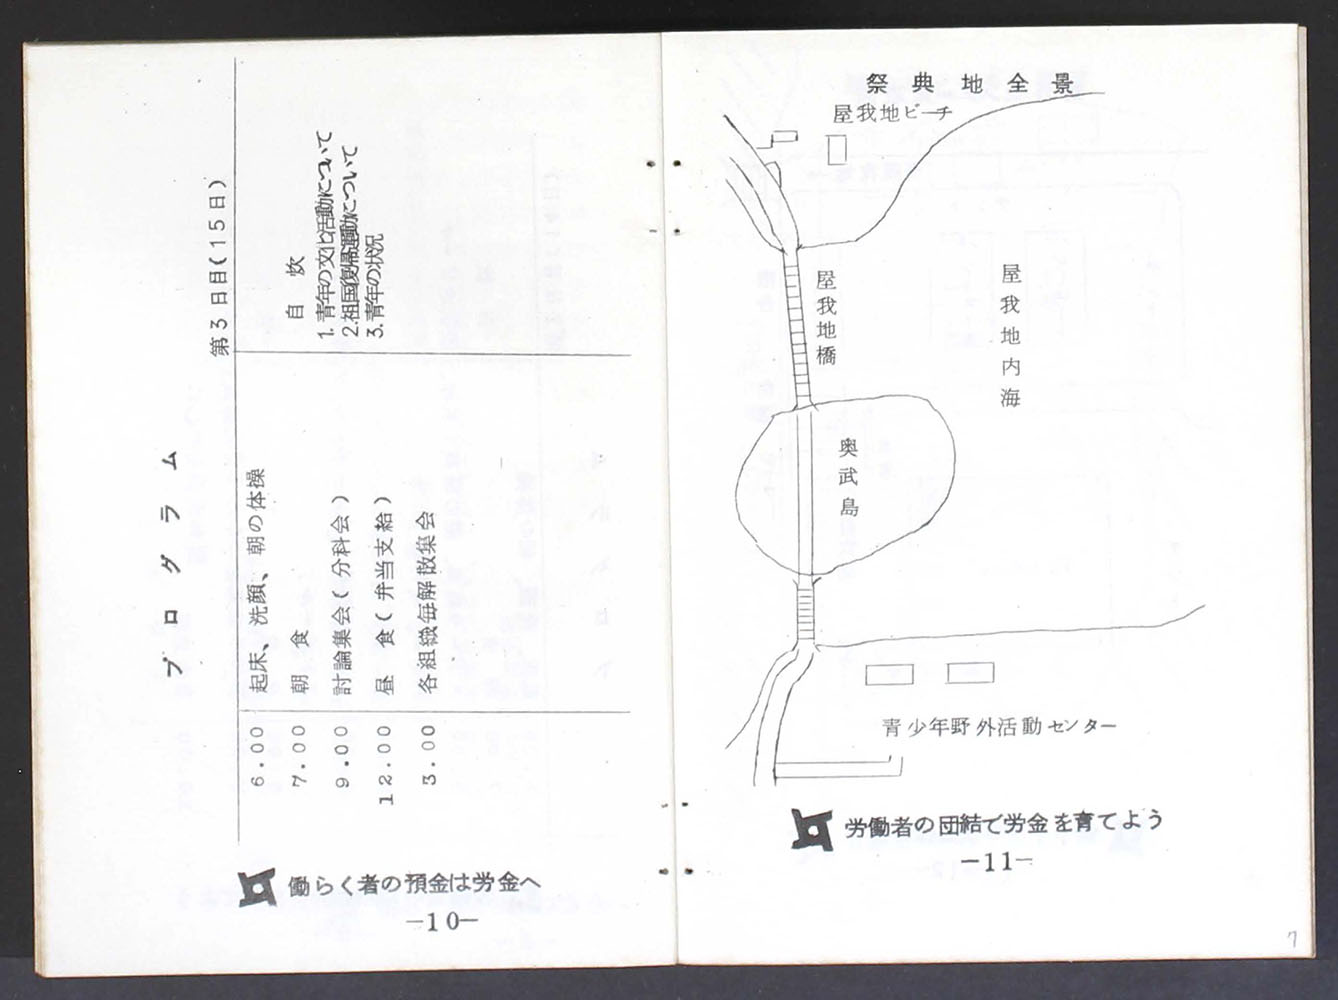 プログラム
第3日目(15日)
6.00 起床、洗顔、朝の体操
7.00 朝食 自炊
9.00 討論集会(分科会) 1.青年の文化活動について
2.祖国復帰運動について
3.青年の状況
12.00 昼食(弁当支給)
3.00 各組織毎解散集会
働らく者の預金は労金へ
—10—
祭典地全景
屋我地ビーチ
屋我地橋
屋我地内海
奥武島
青少年野外活動センター
労働者の団結で労金を育てよう
—11—
7